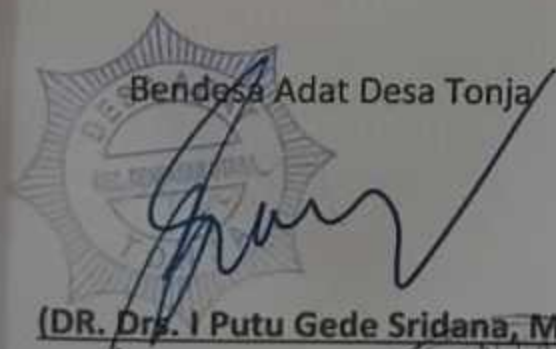 Bendesa Adat Desa Tonja
(DR. Drs. I Putu Gede Sridana, M